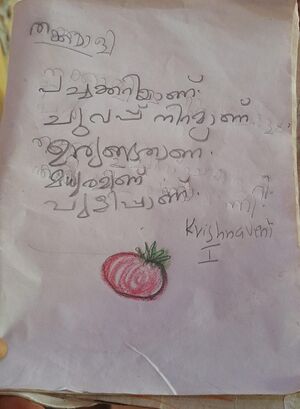 തക്കാളി
പച്ചക്കറിയാണ്.
ചുവപ്പ് നിറമാണ്.
ഉരുണ്ടതാണ്.
മധുരമാണ്
പുളിപ്പാണ്.
Krishnaveni
I